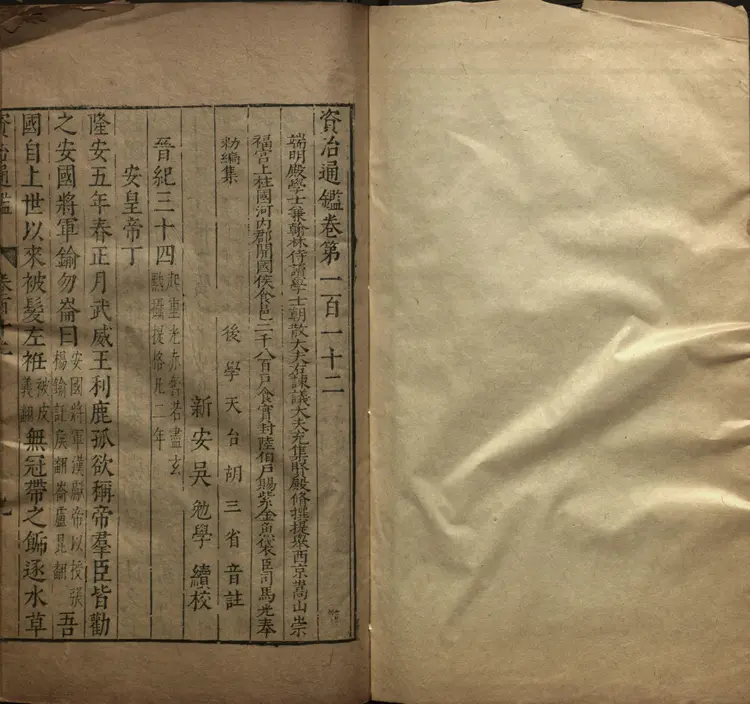 資治通鑑卷第一百一十二
端明殿學士兼翰林侍讀學士朝散大夫右諫議大夫充集賢殿修撰提舉西京嵩山崇
福宮上柱國河內郡開國侯食邑二千八百戶食實封陸伯戶賜紫金魚袋臣司馬光奉
勑編集
後學天台胡三省音註
新安吳勉學續校
晉紀三十四
起重光赤奮若盡玄
黓攝提格凡二年
安皇帝丁
隆安五年春正月武威王利鹿孤欲稱帝羣臣皆勸
之安國將軍鍮勿崙曰
安國將軍漢獻帝以授張
楊鍮託侯翻崙盧昆翻
吾
國自上世以來被髮左袵
被皮
義翻
無冠帶之飾逐水草
資治通鑑